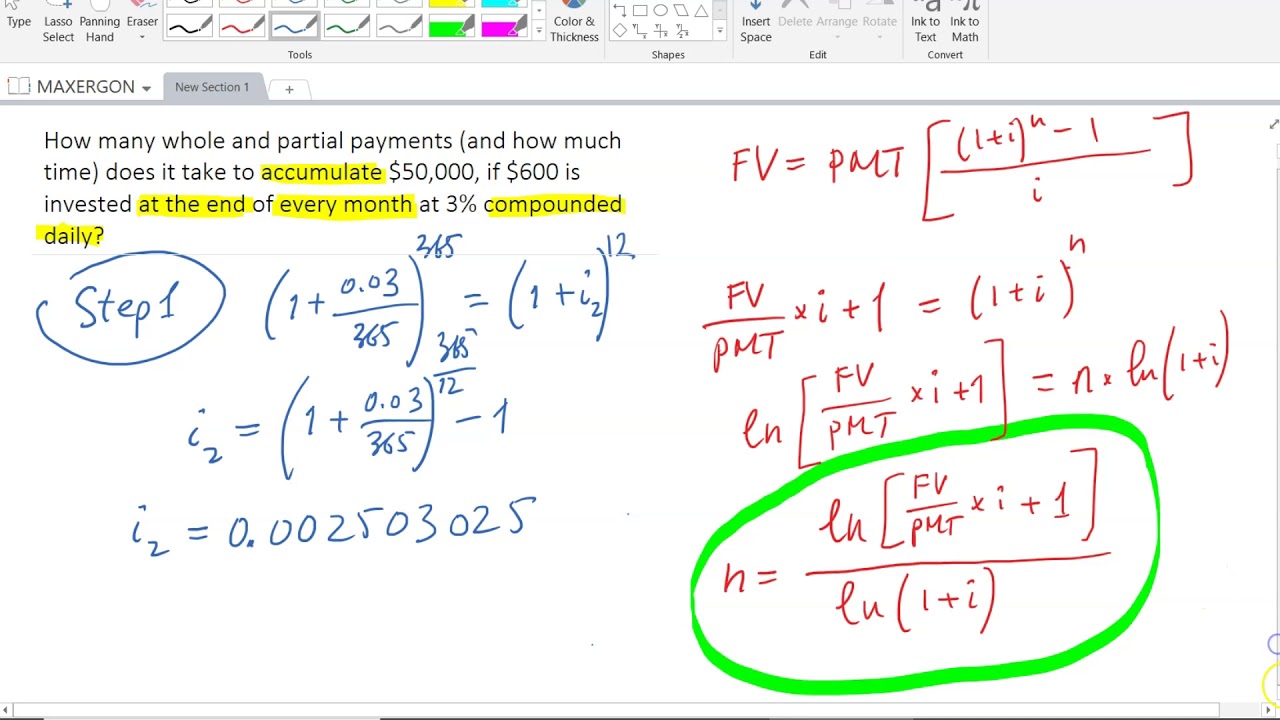 Type
Lasso Select
Panning Hand
Eraser
Color & Thickness
Insert Space
Delete
Arrange
Rotate
Ink to Text
Ink to Math
Tools
Shapes
Edit
Convert
MAXERGON
New Section 1
+
How many whole and partial payments (and how much
time) does it take to accumulate $50,000, if $600 is
invested at the end of every month at 3% compounded
daily?
Step 1
(1 + 0.03/365)^365 = (1 + i₂)^12
i₂ = (1 + 0.03/365)^(365/12) − 1
i₂ = 0.002503025
FV = PMT [((1+i)^n − 1)/i]
FV/PMT × i + 1 = (1+i)^n
ln [FV/PMT × i + 1] = n × ln(1+i)
n = ln [FV/PMT × i + 1] / ln(1+i)